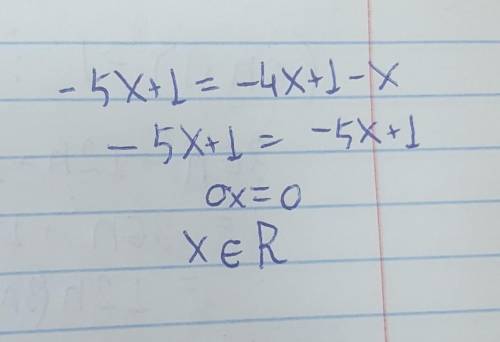 -5x+1 = -4x+1-x
-5x+1 = -5x+1
0x=0
x∈R